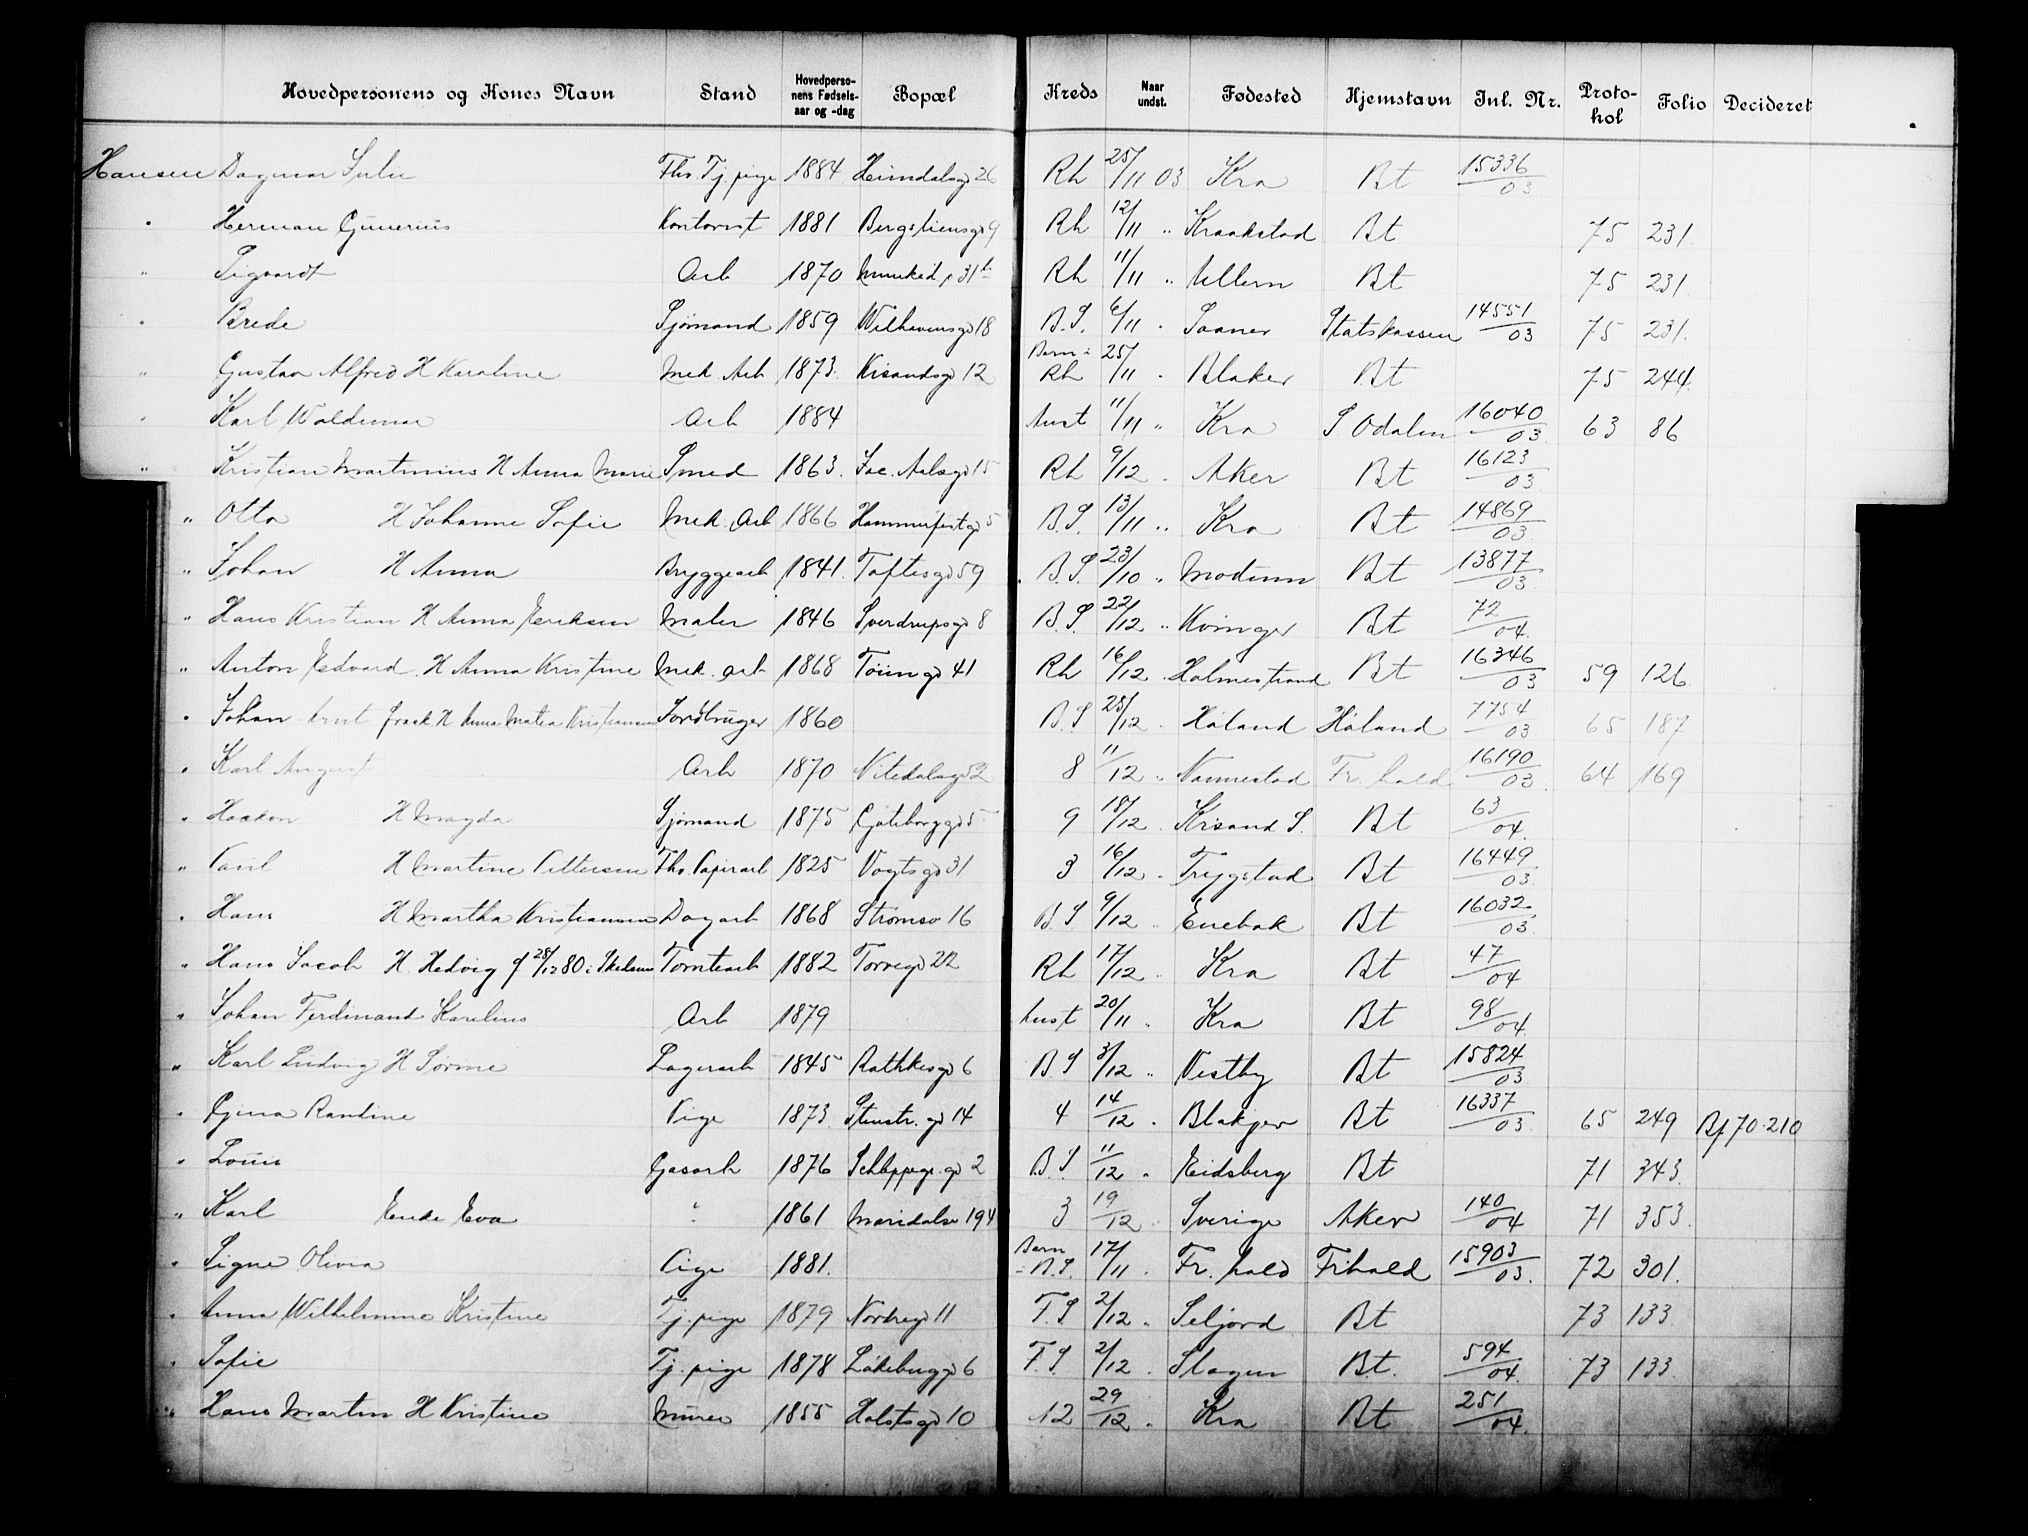 Hovedpersonens og Kones Navn Stand Hovedpersonens Fødselsaar og -dag Bopæl Kreds Naar undst. Fødested Hjemstavn Inl. Nr. Protokol Folio Decideret
Hansen Dagmar Julie Fhv. Tj. pige 1884 Heimdalsgd 26 Rh 25/11 03 Kra Bt 15336/03
" Herman Gunerius Kontorist 1881 Bergsliensgd 9 Rh 12/11 " Kraakstad Bt 75 231.
" Sigvardt Arb 1870 Munked. v 31 b Rh 11/11 " Ullern Bt 75 231
" Brede Sjømand 1859 Welhavensgd 18 B.S. 6/11 " Saaner Statskassen 14551/03 75 231.
" Gustav Alfred H Karoline Mek Arb 1873. Krsandsgd 12 Barn i Rh 25/11 " Blaker Bt 75 244.
" Karl Waldemar Arb 1884 Anst 11/11 " Kra S Odalen 16040/03 63 86
" Kristian Martinius H Anna Marie Smed 1863. Jac. Aalsgd 15 Rh 9/12 " Aker Bt 16123/03
" Otto H Johanne Sofie Mek. Arb 1866 Hammerfestgd 5 B.S. 13/11 " Kra Bt 14869/03
" Johan H Anna Bryggearb 1841. Toftesgd 59 B.S. 23/10 " Modum Bt 13877/03
" Hans Kristian H Anna Eriksen Maler 1846 Sverdrupsgd 8 B.S. 22/12 " Kvinger Bt 72/04.
" Anton Edvard H Anna Kristine Mek. Arb 1868 Töiengd 41 Rh 16/12 " Holmestrand Bt 16346/03 59 126
" Johan Arnt frask. H Anna Matea Kristiansen Jordbruger 1860 B.S 25/12 " Höland Höland 7754/03 65 187
" Karl August Arb 1870 Nitedalsgd 52 8 11/12 " Nannestad Fr. hald 16190/03 64 169
" Haakon H Magda Sjømand 1875 Gøteborggd 5 9 18/12 " Krsand S. Bt 63/04.
" Paul H Martine Pettersen Fhv. Papirarb 1825 Vogtsgd 31 3 16/12 " Trygstad Bt 16449/03.
" Hans H Martha Kristiansen Dagarb 1868 Strömsv 16 B.S 9/12 " Enebak Bt 16032/03.
" Hans Jacob H. Hedvig f 28/12 80 i Skedsmo Tomtearb 1882 Torvegd 22 Rh 17/12 " Kra Bt 47/04
" Johan Ferdinand Karelius Arb 1879 Anst 20/11 " Kra Bt 98/04.
" Karl Ludvig H Sörine Lagerarb 1845 Rathkesgd 6 B.S 3/12 " Vestby Bt 15824/03
" Gina Randine Pige 1873 Stenstr. gd 14 4 14/12 " Blakjer Bt 16337/03 65 249 Bf 70.210
" Louis Gasarb 1876 Schleppegr. gd 2 B.S 11/12 " Eidsberg Bt 71 343.
" Karl Enke Eva " 1861 Maridalsv 194 3 19/12 " Sverige Aker 140/04 71 353.
" Signe Olivia Pige 1881. Barn i B.S. 17/11 " Fr. hald Frhald 15903/03. 72 301.
" Anna Wilhelmine Kristine Tj. pige 1879 Nordregd 11 F.S 2/12 " Seljord Bt 73 133.
" Sofie Tj. pige 1878 Lökebergd 6 F.S 2/12 " Slagen Bt. 594/04. 73 133.
" Hans Martin H Kristine Murer 1855 Holstsgd 10 12 29/12 " Kra Bt 251/04.